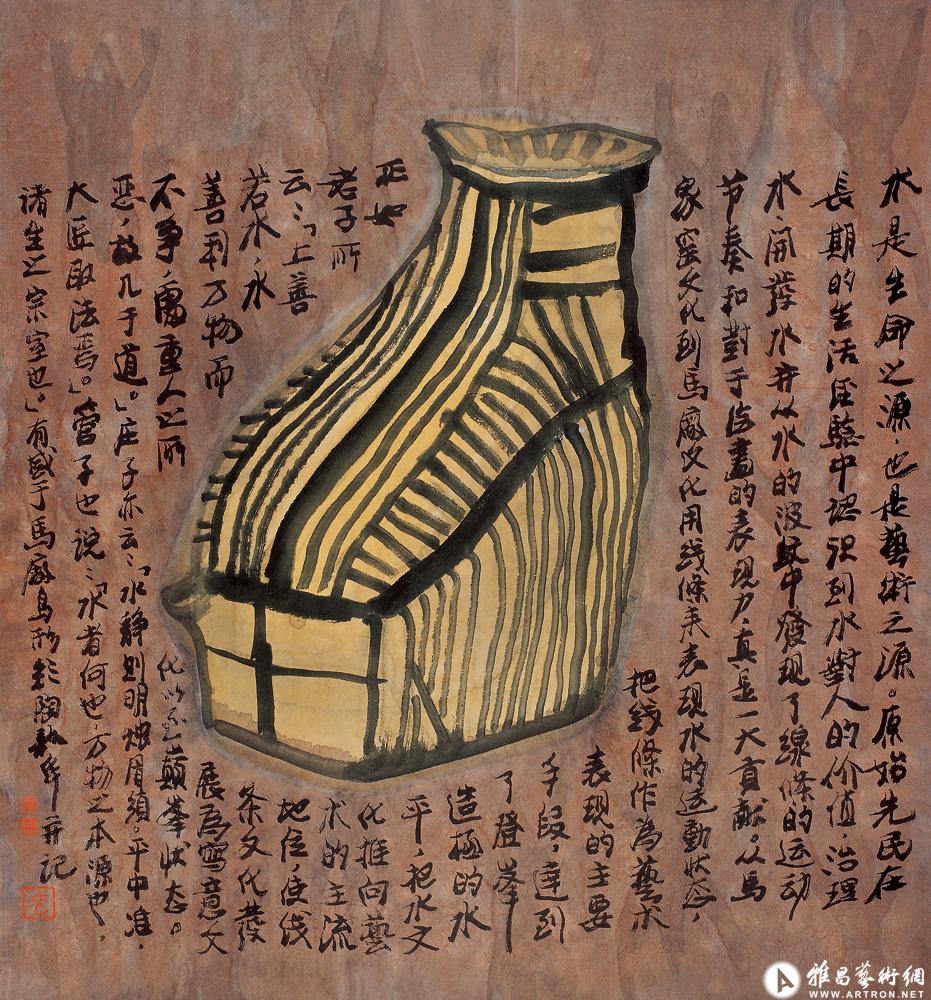 水是生命之源，也是藝術之源。原始先民在
長期的生活經驗中認识到水對人的价值，治理
水，開發水并从水的波紋中發现了線條的运动
节奏和對于绘畫的表现力，真是一大贡献。从馬
家窑文化到馬廠文化用线條来表现水的运動状态，
把线條作為藝术
表现的主要
手段，達到
了登峯
造極的水
平，把水文
化推向藝
术的主流
地位，使线
条文化發
展為寫意文
化以至巔峯状态。
正如
老子所
云：「上善
若水，水
善利万物而
不争，處重人之所
惡，故几于道。」庄子亦云：「水静则明烛眉须。平中准，
大匠取法焉。」管子也说：「水者何也，万物之本源也，
诸生之宗室也。」有感于馬廠鸟形彩陶 并记
雅昌藝術網
WWW.ARTRON.NET